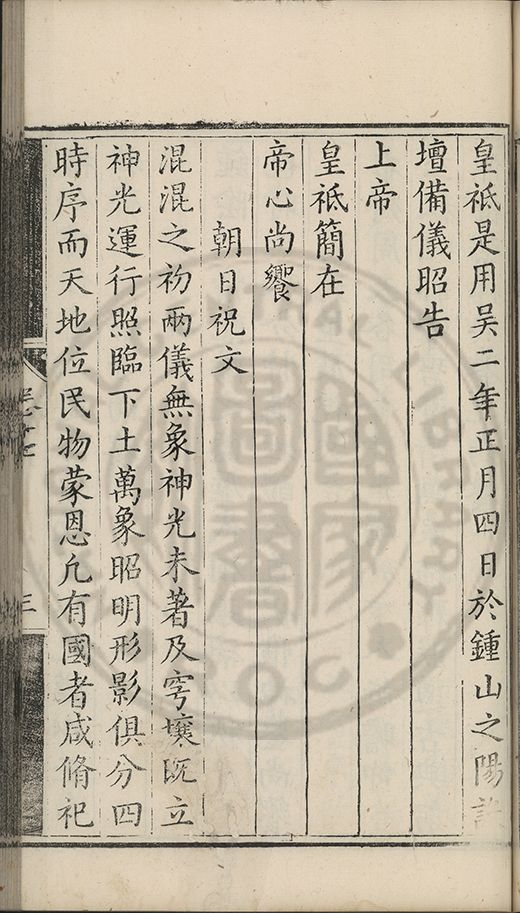 皇祗是用吴二年正月四日於鍾山之陽設
壇備儀昭告
上帝
皇祗簡在
帝心尚饗
朝日祝文
混混之初兩儀無象神光未著及穹壤既立
神光運行照臨下土萬象昭明形影俱分四
時序而天地位民物蒙恩凢有國者咸脩祀
三